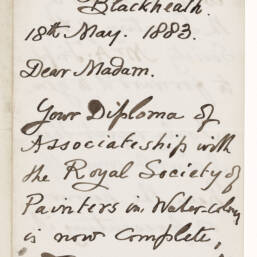 Blackheath.
18th May. 1883.
Dear Madam.
Your Diploma of
Associateship with
the Royal Society of
Painters in Water-Colour
is now complete,